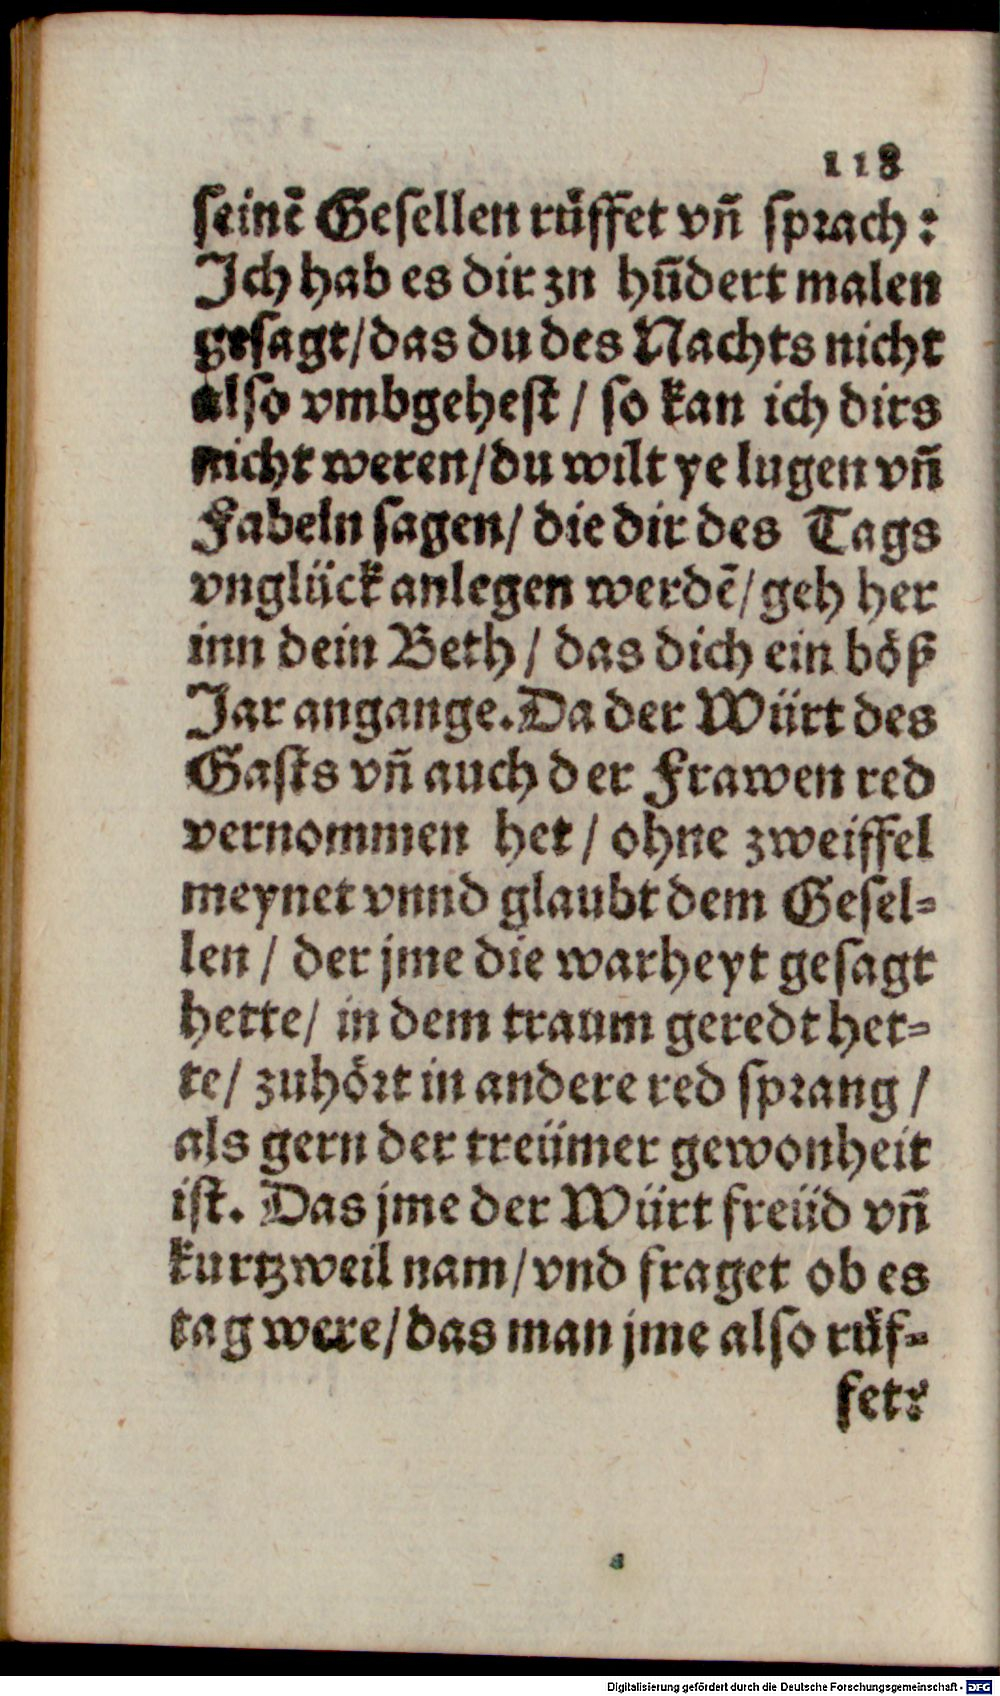 118
seinē Gesellen rüffet vñ sprach:
Ich hab es dir zn hūdert malen
gesagt/das du des Nachts nicht
also vmbgehest / so kan ich dirs
nicht weren/du wilt ye lugen vñ
Fabeln sagen/ die dir des Tags
vnglück anlegen werdē/geh her
inn dein Beth / das dich ein böß
Jar angange. Da der Würt des
Gasts vñ auch der Frawen red
vernommen het / ohne zweiffel
meynet vnnd glaubt dem Gesel-
len / der jme die warheyt gesagt
hette/ in dem traum geredt het-
te/ zuhört in andere red sprang /
als gern der treümer gewonheit
ist. Das jme der Würt freüd vñ
kurtzweil nam/vnd fraget ob es
tag were/das man jme also rüf-
fet?
Digitalisierung gefördert durch die Deutsche Forschungsgemeinschaft - DFG